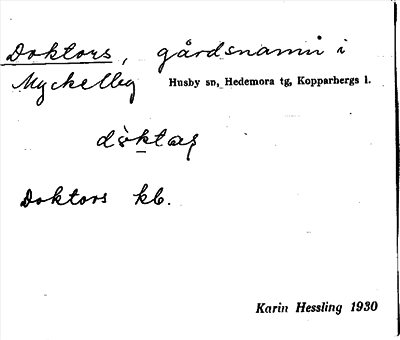 Doktors, gårdsnamn i
Myckelby Husby sn, Hedemora tg, Kopparbergs l.
Doktors kb.
Karin Hessling 1930